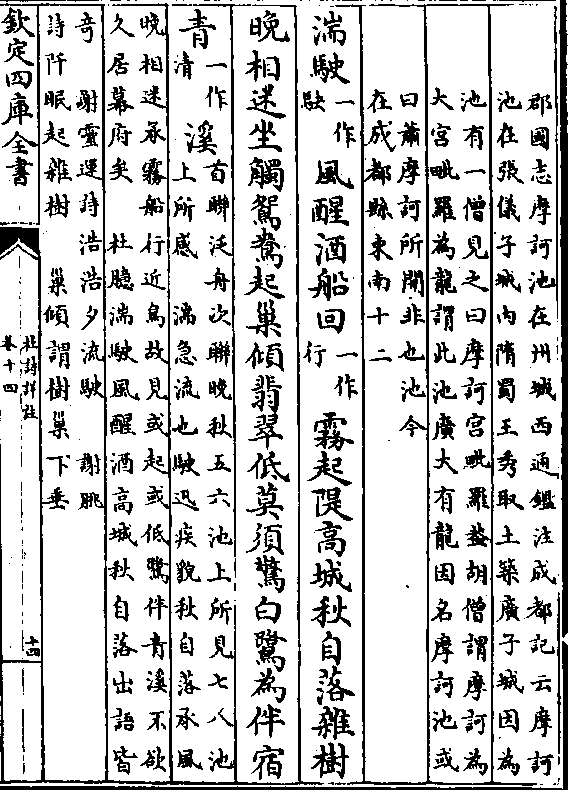 郡國志摩訶池在州城西通鑑注成都記云摩訶
池在張儀子城内隋蜀王秀取土築廣子城因為
池有一僧見之曰摩訶宮毗羅葢胡僧謂摩訶為
大宮毗羅為龍謂此池廣大有龍因名摩訶池或
曰蕭摩訶所開非也池今
在成都縣東南十二
湍駛一作駃風醒酒船回一作行霧起隄高城秋自落雜樹
晚相迷坐觸鴛鴦起巢傾翡翠低莫須驚白鷺為伴宿
青一作清溪
首聯泛舟次聯晚秋五六池上所見七八池
上所感 湍急流也駛迅疾貌秋自落承風
晚相迷承霧船行近鳥故見或起或低驚伴青溪不欲
久居幕府矣 杜臆湍駛風醒酒高城秋自落出語皆
奇 謝靈運詩浩浩夕流駛 謝朓
詩阡眠起雜樹 巢傾謂樹巢下垂
欽定四庫全書
杜詩詳註
卷十四
十四